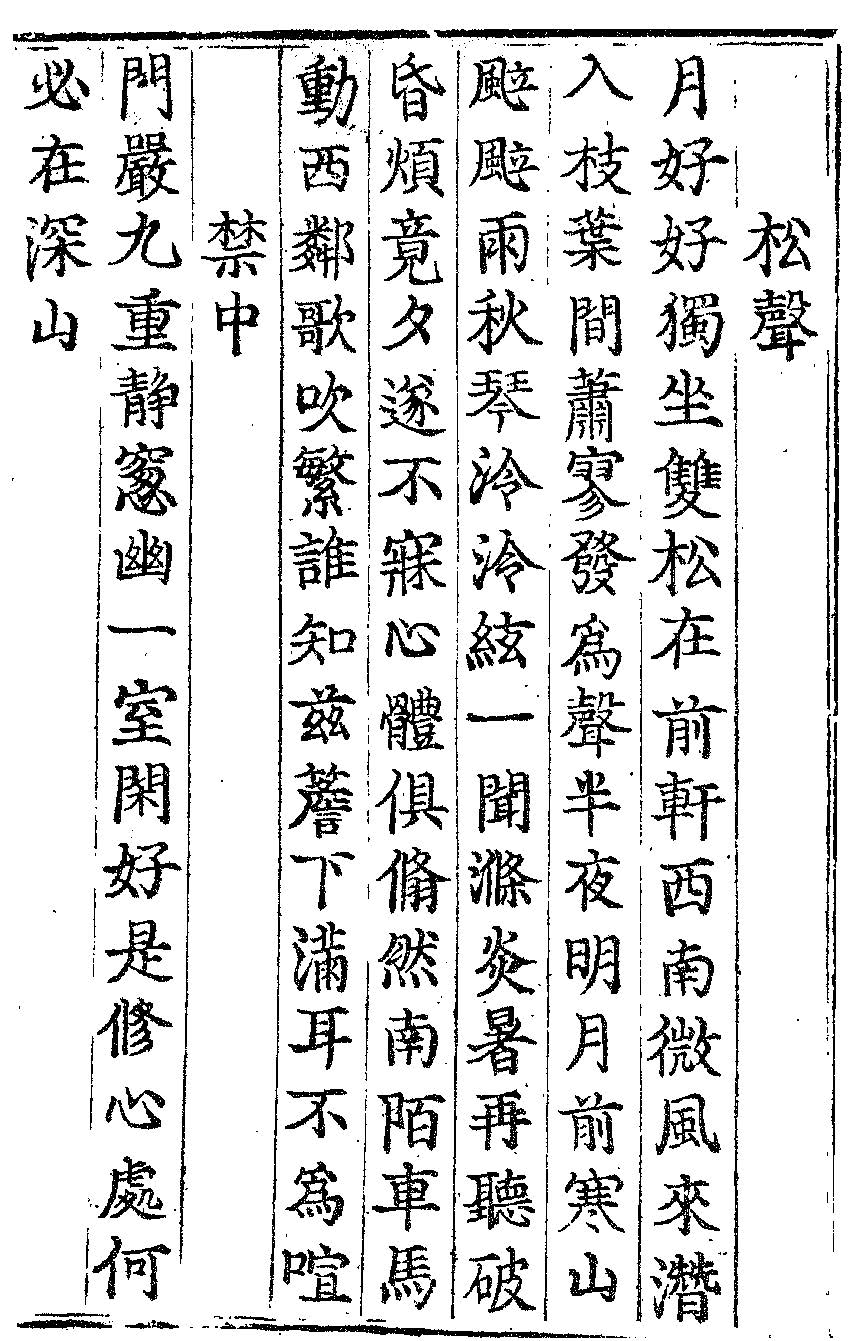 松聲
月好好獨坐雙松在前軒西南微風來潛
入枝葉間蕭寥發爲聲半夜明月前寒山
颹颹雨秋琴泠泠絃一聞滌炎暑再聽破
昏煩竟夕遂不寐心體俱翛然南陌車馬
動西鄰歌吹繁誰知兹簷下滿耳不爲喧
禁中
門嚴九重静窓幽一室閑好是修心處何
必在深山